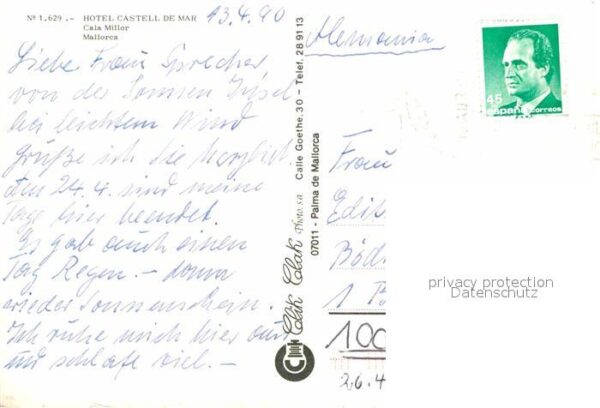 Nº 1.629 .— HOTEL CASTELL DE MAR
Cala Millor
Mallorca
13.4.90
Liebe Frau Sprecher
von der Sonnen Insel
bei leichtem Wind
Grüße ich Sie herzlich
Am 24.4. sind meine
Tage hier beendet.
Es gab auch einen
Tag Regen. — dann
wieder Sonnenschein.
Ich ruhe mich hier aus
und schlafe viel. —
Clik Clak Photo, s.a.
Calle Goethe, 30 - Telef. 28 91 13
07011 - Palma de Mallorca
Alemania
45
españa correos
Frau
Edit
Böd
1
100
26.4
privacy protection
Datenschutz